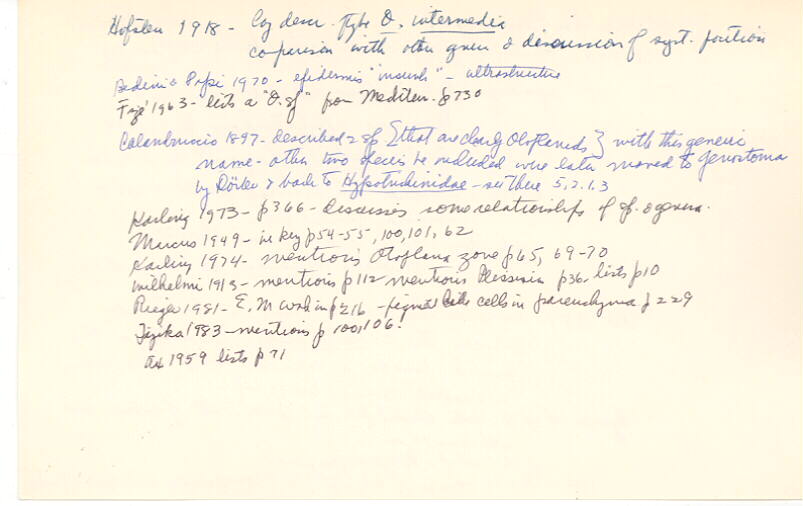 Hofsten 1918 - Cog descr. type O. intermedia
comparison with other genera & discussion of syst. position
Bedini & Papi 1970 - epidermis - ultrastructure
1963 - lists a "O. sp" from Mediterr. p730
Calandruccio 1897 - described 2 sp [that are clearly Otoplanids] with this generic
name - other two species he included were later moved to Genostoma
by Dörler & back to Hypotrichinidae - see there 5,2.1.3
Karling 1973 - p366 - discusses some relationships of sp. & genera.
Marcus 1949 - in key p54-55, 100, 101, 62
Karling 1974 - mentions Otoplana zone p65, 69-70
Wilhelmi 1913 - mentions p112 mentions Plessisia p36. lists p10
Rieger 1981 - E.M work in p216 - figures cells in parenchyma p229
1983 - mentions p 100, 106.
Ax 1959 lists p71